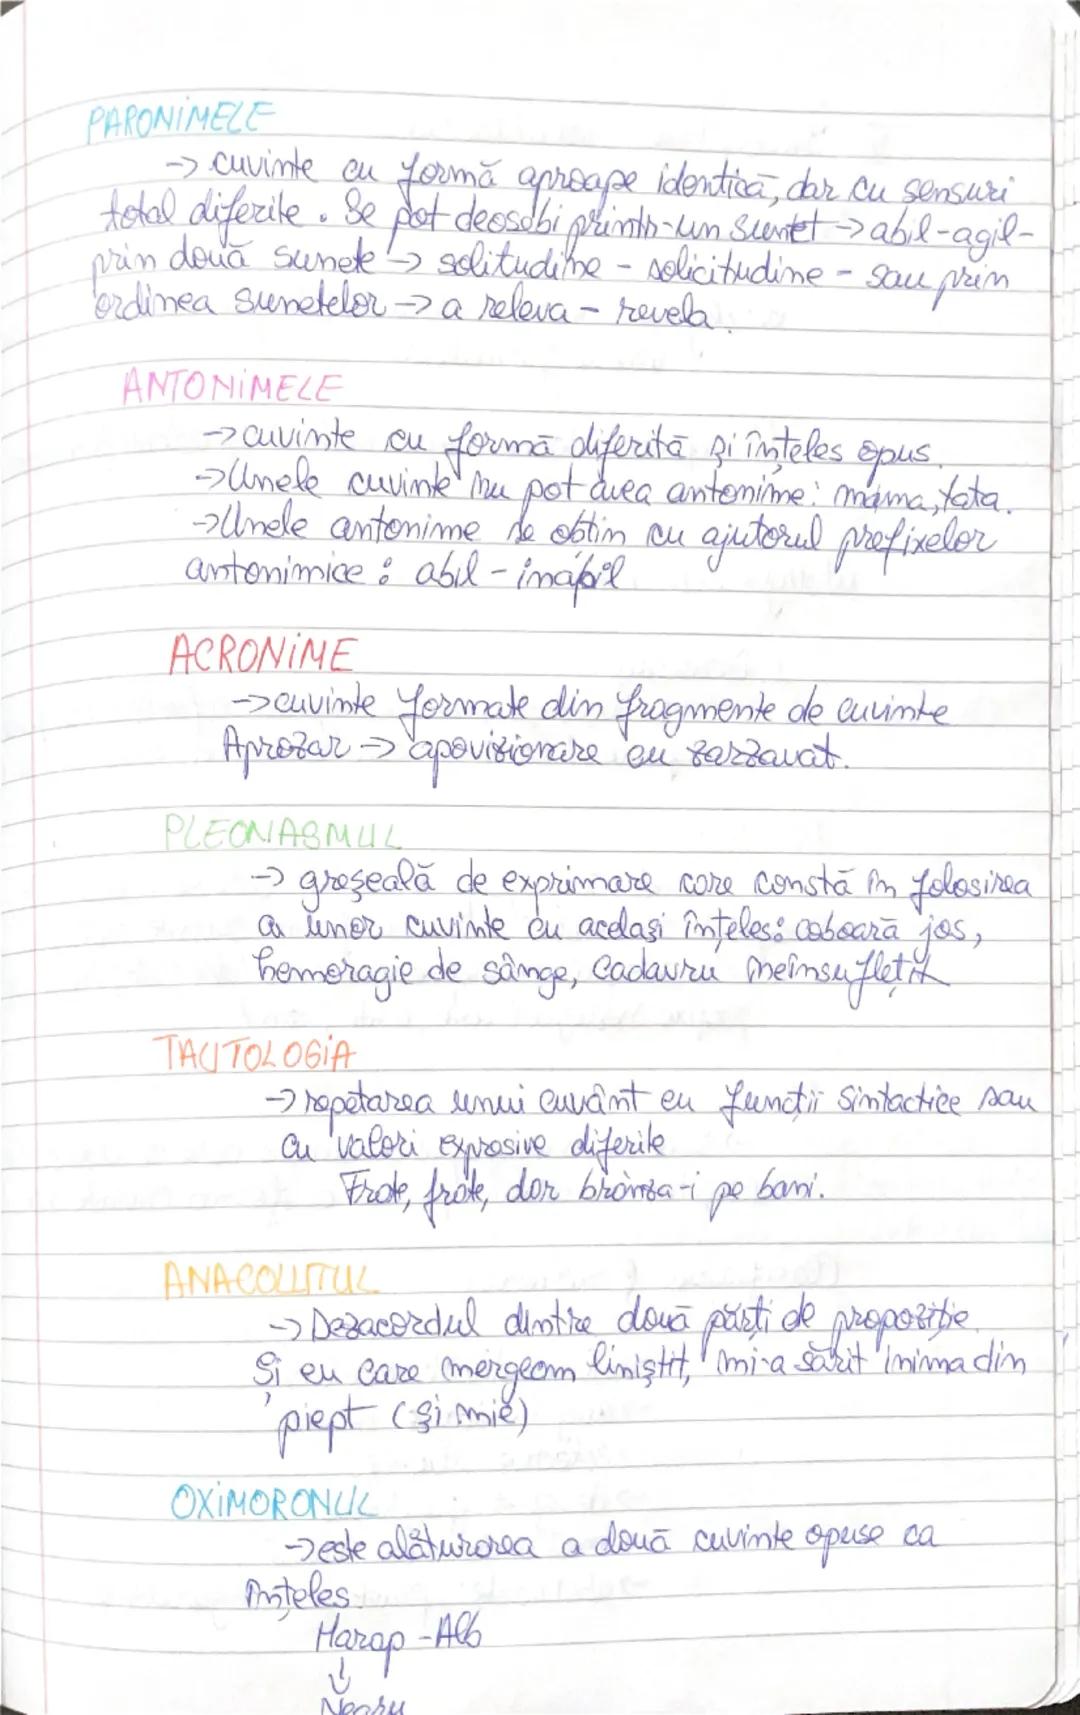 PARONIMELE
-> cuvinte cu formă aproape identică, dar cu sensuri
total diferite. Se pot deosebi printr-un sunet -> abil-agil-
prin două sunete -> solitudine - solicitudine - sau prin
ordinea sunetelor -> a releva - revela.
ANTONIMELE
-> cuvinte cu formă diferită și înțeles opus.
-> Unele cuvinte nu pot avea antonime: mama, tata.
-> Unele antonime se obțin cu ajutorul prefixelor
antonimice: abil - inabil
ACRONIME
-> cuvinte formate din fragmente de cuvinte
Aprozar -> apovizionare cu zarzavat.
PLEONASMUL
-> greșeală de exprimare care constă în folosirea
a unor cuvinte cu același înțeles: coboară jos,
hemoragie de sânge, cadavru neînsuflețit
TAUTOLOGIA
-> repetarea unui cuvânt cu funcții sintactice sau
cu valori expresive diferite
Frate, frate, dar brânza-i pe bani.
ANACOLUTUL
-> Dezacordul dintre două părți de propoziție.
Și eu care mergeam liniștit, mi-a sărit inima din
piept (și mie)
OXIMORONUL
-> este alăturarea a două cuvinte opuse ca
înțeles.
Harap -Alb
↓
Negru